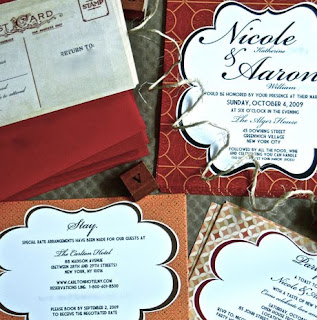 POST CARD
STAMP
RETURN TO:
Nicole
Katherine
&
Aaron
William
WOULD BE HONORED BY YOUR PRESENCE AT THEIR
SUNDAY, OCTOBER 4, 2009
AT SIX O'CLOCK IN THE EVENING
The Alger House
45 DOWNING STREET
GREENWICH VILLAGE
NEW YORK CITY
FOLLOWED BY ALL THE FOOD, WINE
AND CELEBRATING YOU CAN HANDLE
Stay.
SPECIAL RATE ARRANGEMENTS HAVE BEEN MADE FOR OUR GUESTS AT
The Carlton Hotel
88 MADISON AVENUE
(BETWEEN 28TH AND 29TH STREETS)
NEW YORK, NY 10016
WWW.CARLTONHOTELNY.COM
RESERVATIONS LINE: 1-800-601-8500
PLEASE BOOK BY SEPTEMBER 2, 2009
TO RECEIVE THE NEGOTIATED RATE
Nicole &